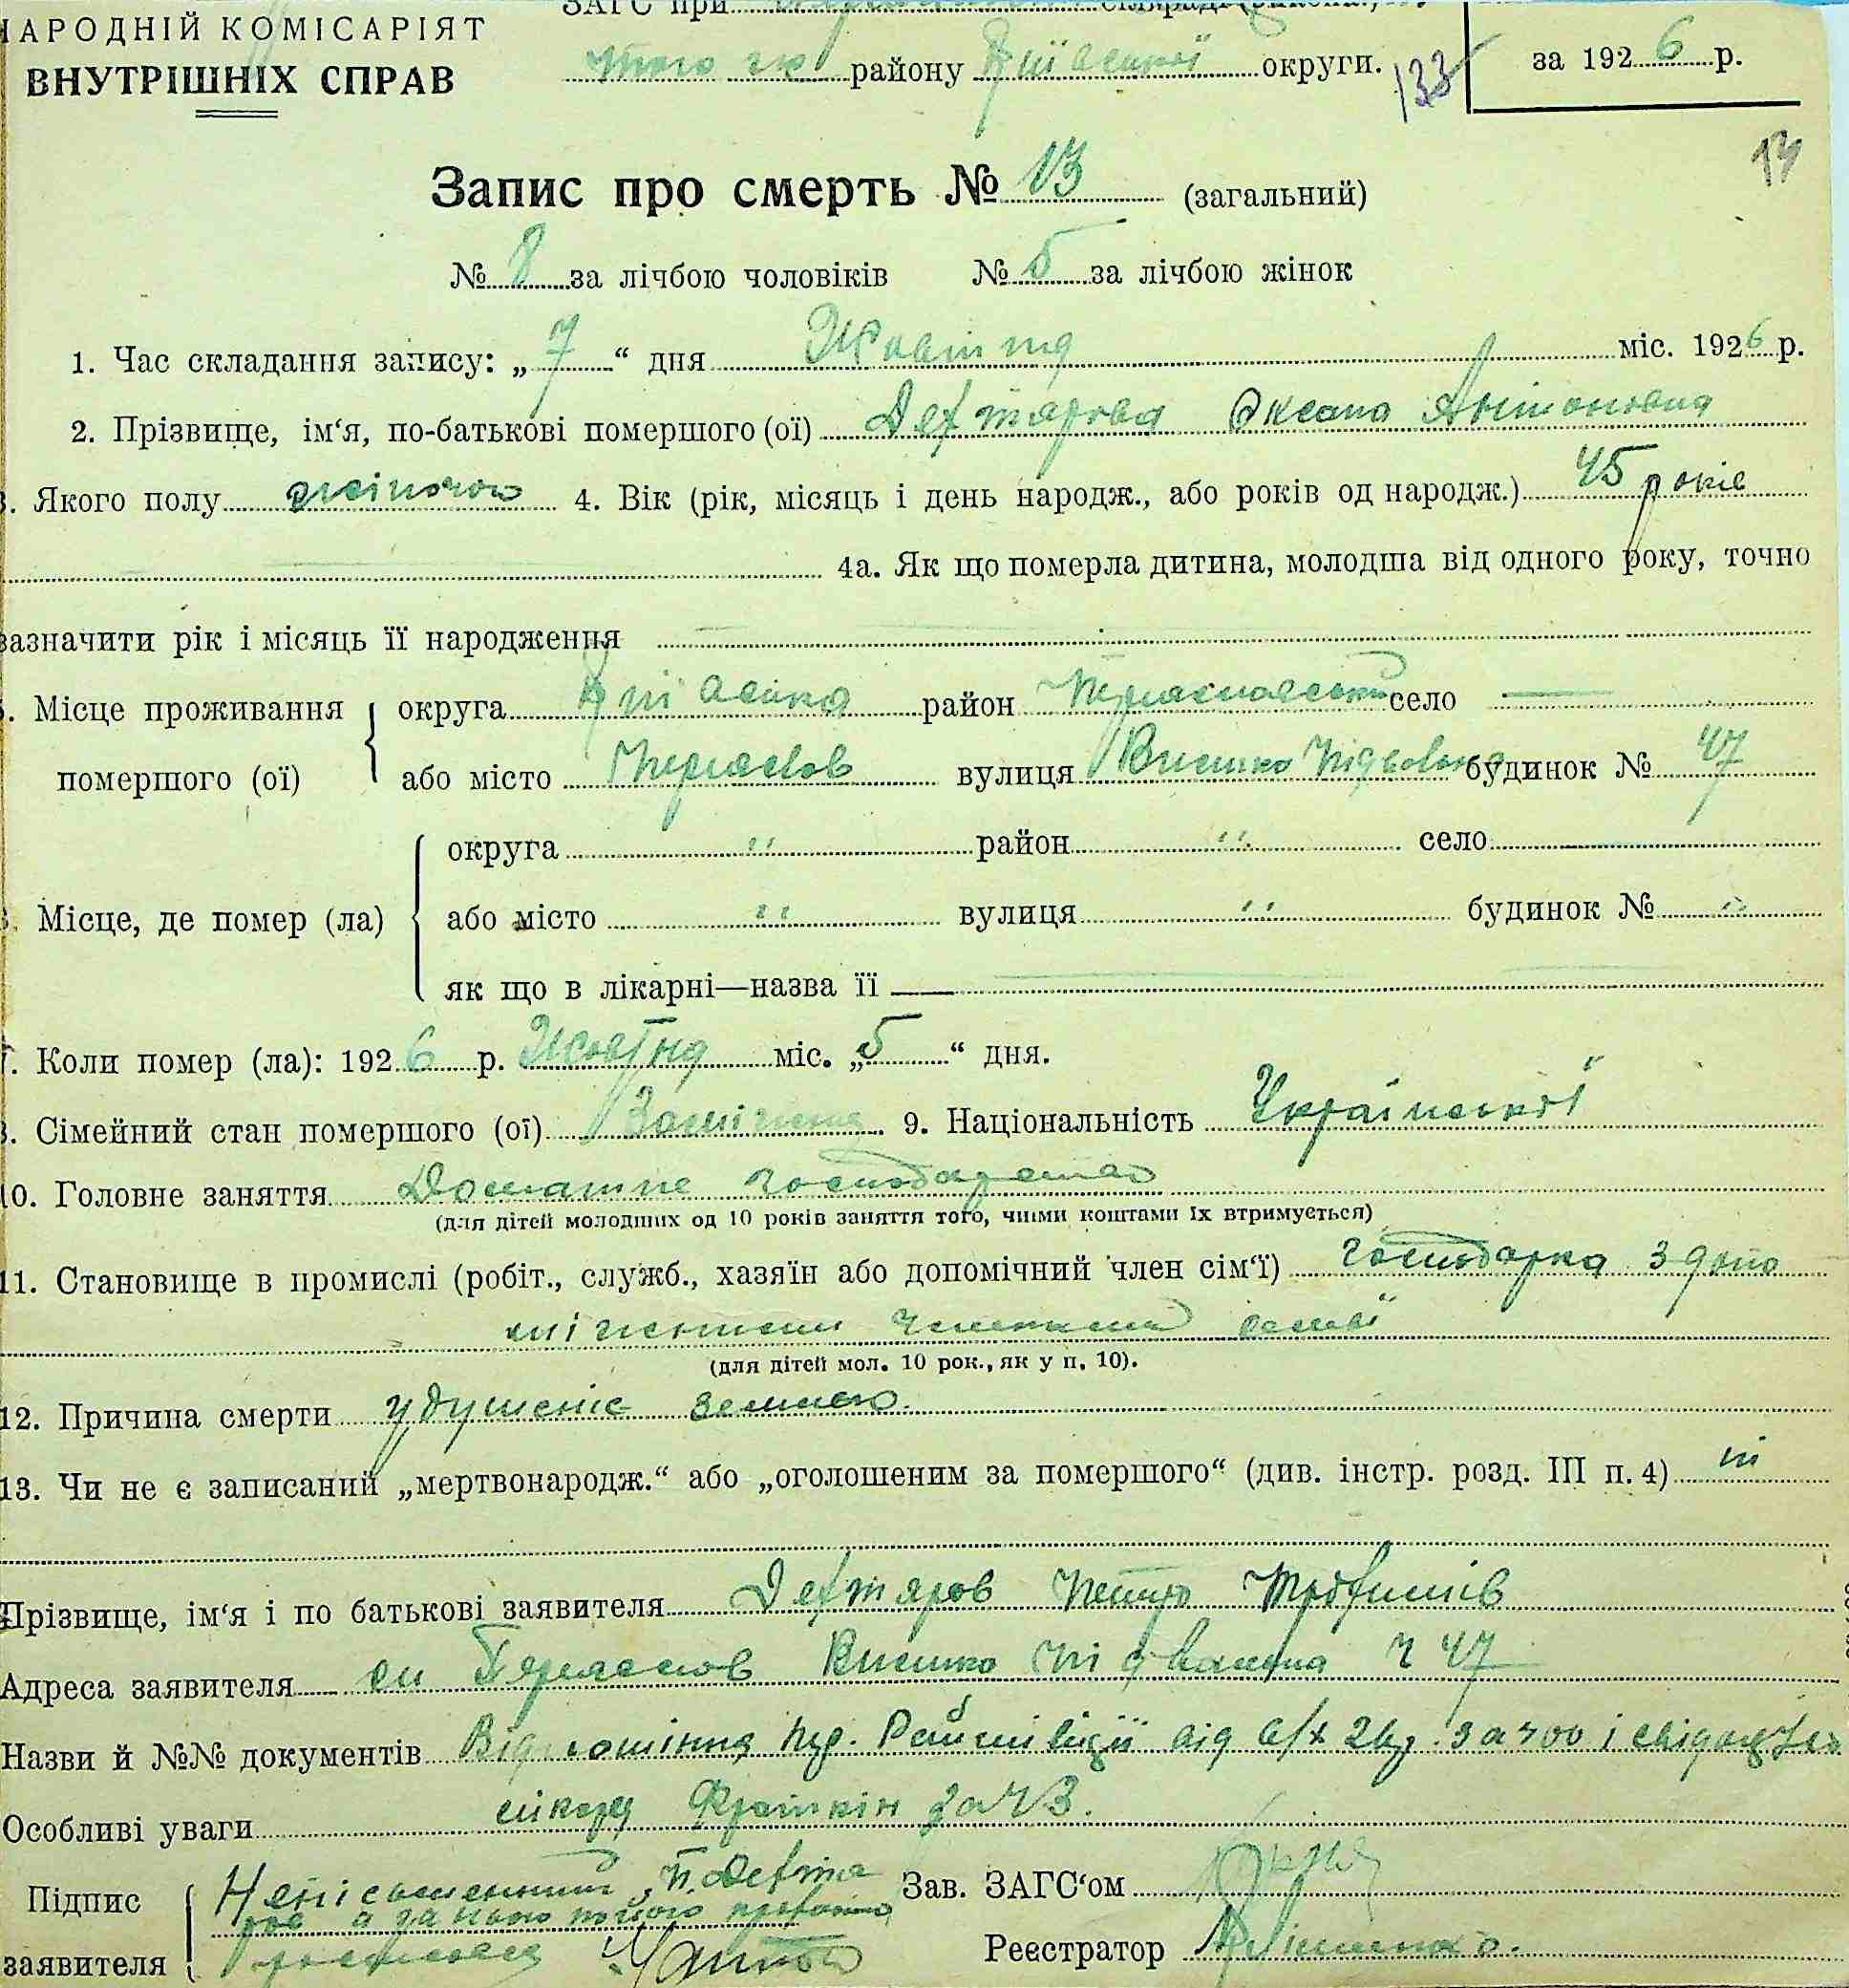 НАРОДНІЙ КОМІСАРІЯТ
ВНУТРІШНІХ СПРАВ
ЗАГС при
того ж району округи.
133
за 1926 р.
13
Запис про смерть № 13 (загальний)
№ 8 за лічбою чоловіків № 5 за лічбою жінок
1. Час складання запису: „7“ дня Жовтня міс. 1926 р.
2. Прізвище, ім‘я, по-батькові помершого (ої) Дехтярова Оксана Антоновна
3. Якого полу жіночого 4. Вік (рік, місяць і день народж., або років од народж.) 45 років
4а. Як що померла дитина, молодша від одного року, точно
зазначити рік і місяць її народження
5. Місце проживання округа район Переяславський село
помершого (ої) або місто Переяслов вулиця будинок № 47
округа " район " село
6. Місце, де помер (ла) або місто " вулиця " будинок № "
як що в лікарні—назва її
7. Коли помер (ла): 1926 р. Жовтня міс. „5“ дня.
8. Сімейний стан помершого (ої) Заміжня 9. Національність Української
10. Головне заняття Домашнє господарство
(для дітей молодших од 10 років заняття того, чиїми коштами їх втримується)
11. Становище в промислі (робіт., служб., хазяїн або допомічний член сім‘ї) господарка з допо
мічними членами семї
(для дітей мол. 10 рок., як у п. 10).
12. Причина смерти удушеніє землею.
13. Чи не є записаний „мертвонародж.“ або „оголошеним за помершого“ (див. інстр. розд. III п. 4) ні
Прізвище, ім‘я і по батькові заявителя Дехтяров Петро Трофимів
Адреса заявителя м Переяслов Підвальна ч 47
Назви й №№ документів Відношення Пер. Райміліції від 6/X 26р. за 700 і
Особливі уваги лікаря за ч 3.
Підпис Неписьменний П. Дехтя
ров а за нього його проханню
заявителя
Зав. ЗАГС‘ом
Реєстратор